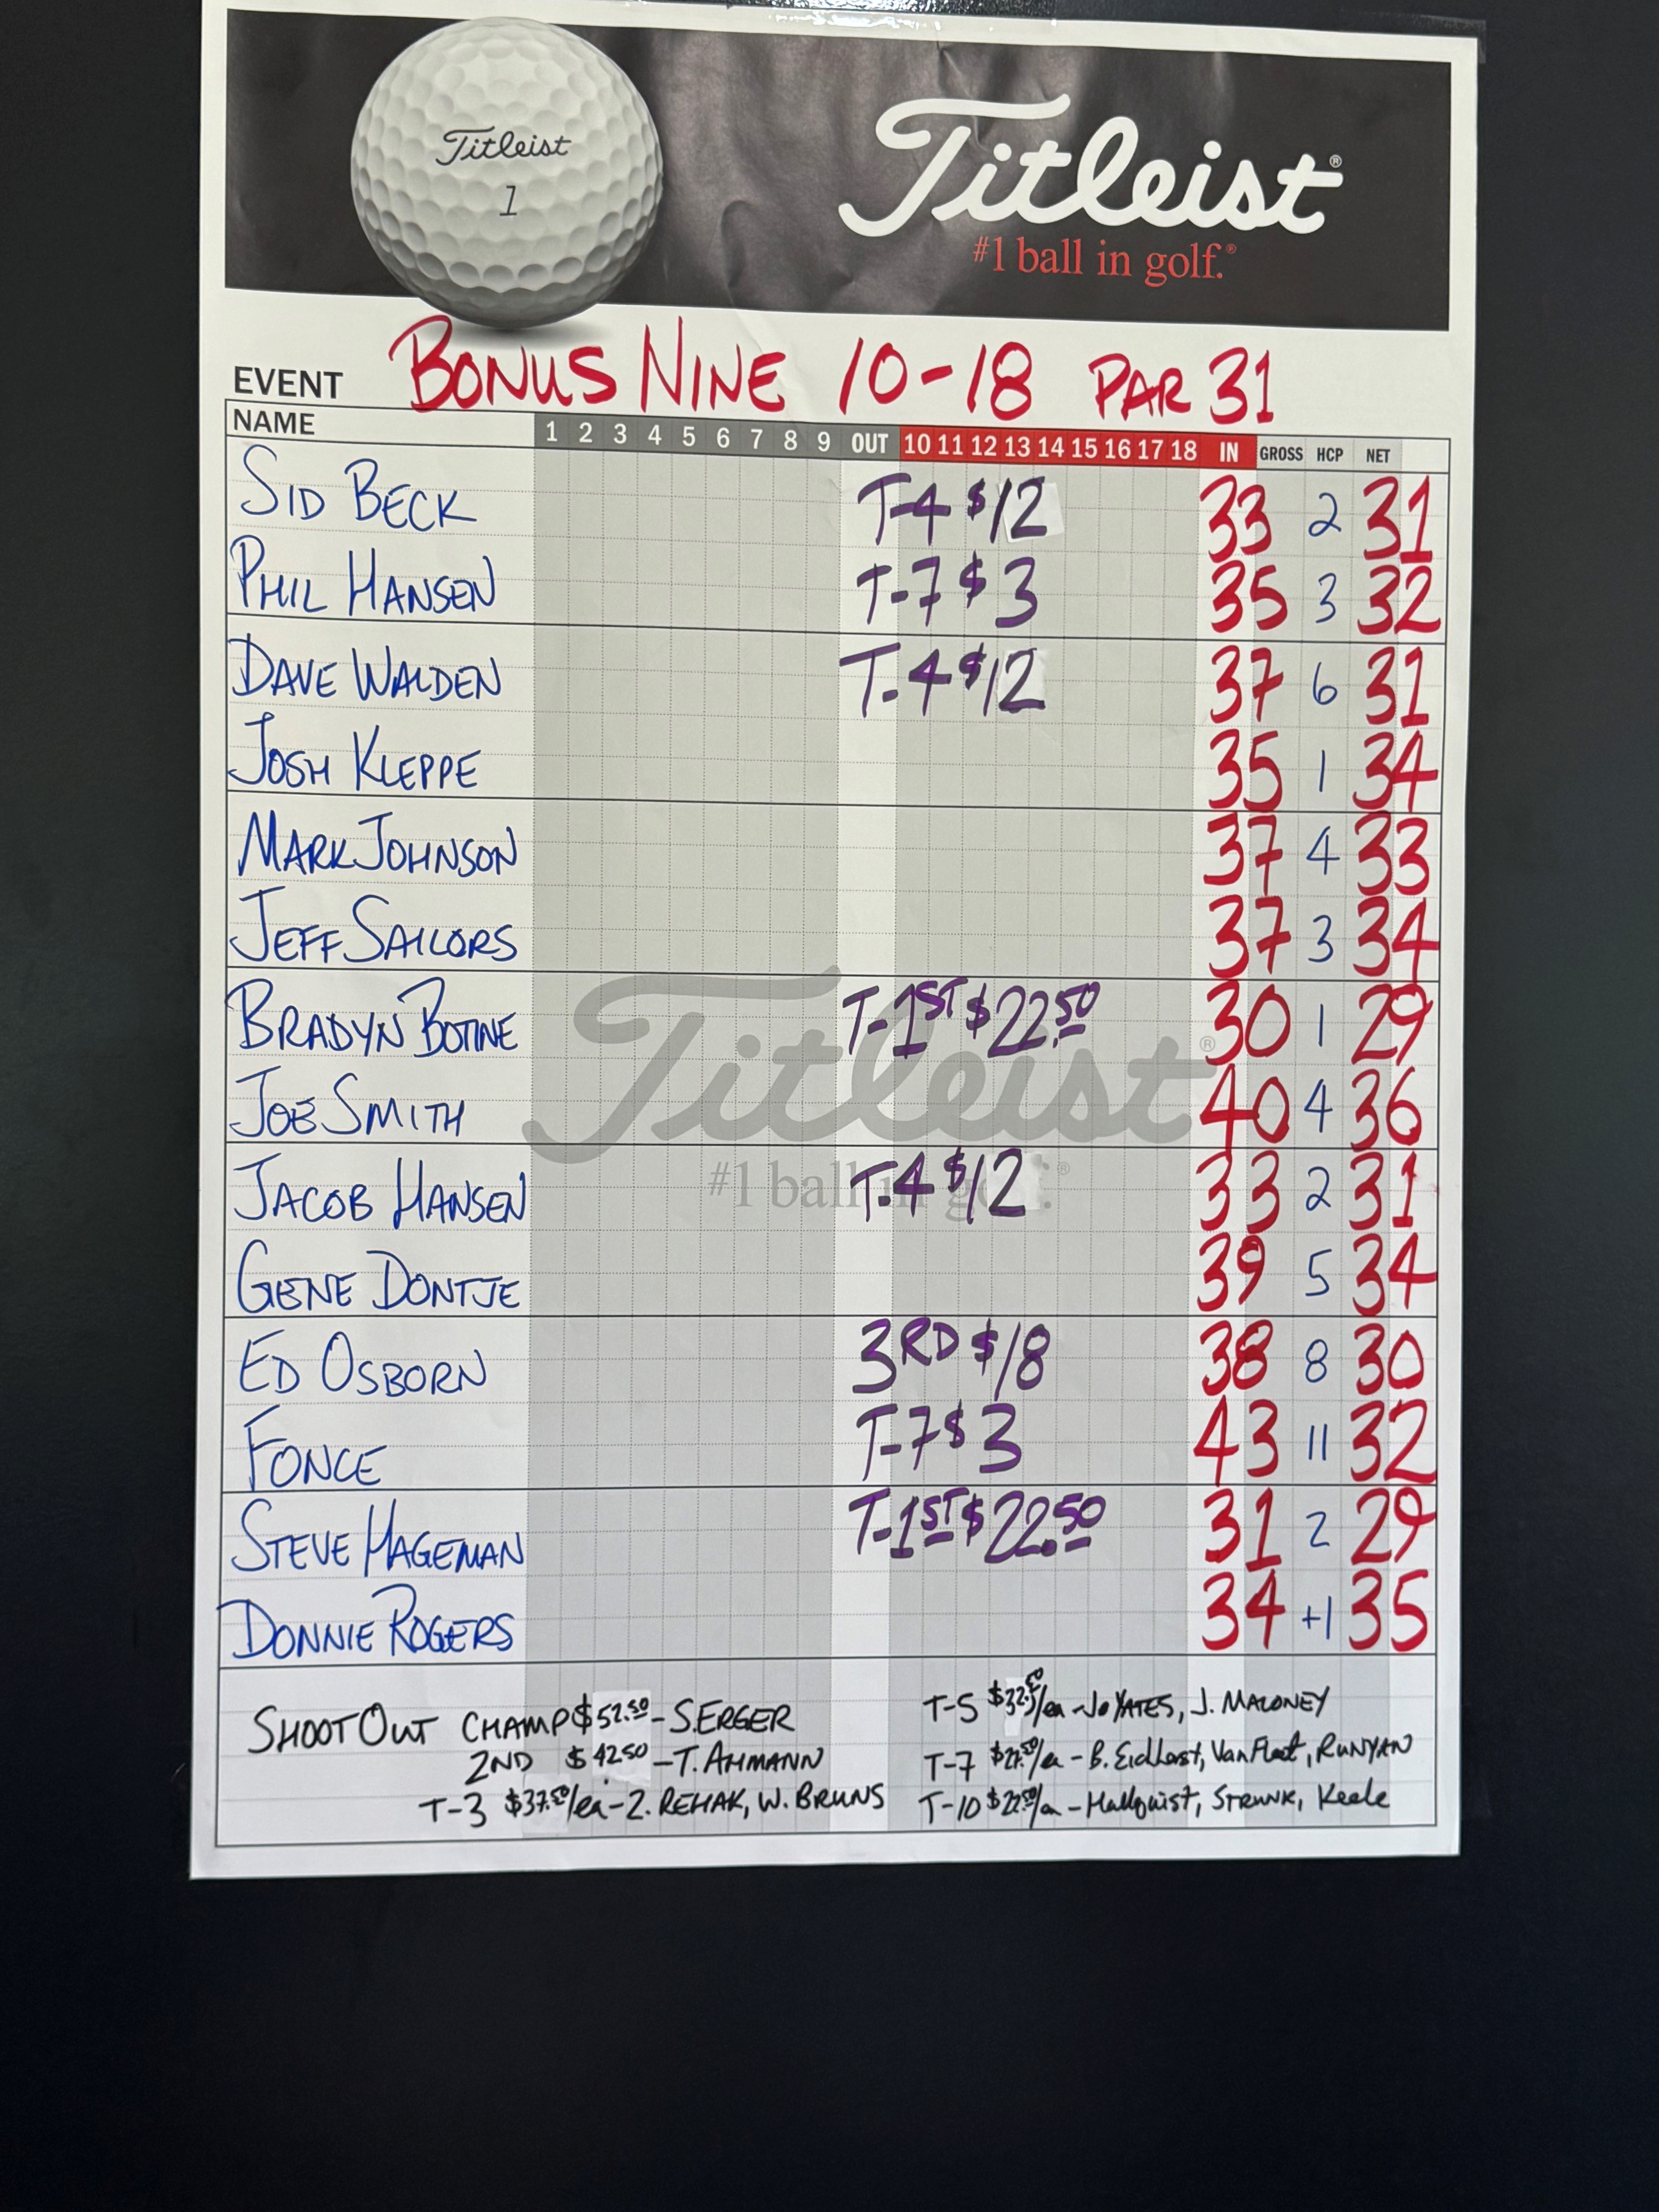 Titleist
1
Titleist®
#1 ball in golf.®
EVENT BONUS NINE 10-18 PAR 31
NAME 1 2 3 4 5 6 7 8 9 OUT 10 11 12 13 14 15 16 17 18 IN GROSS HCP NET
SID BECK T-4 $12 33 2 31
PHIL HANSEN T-7 $3 35 3 32
DAVE WALDEN T-4 $12 37 6 31
JOSH KLEPPE 35 1 34
MARK JOHNSON 37 4 33
JEFF SAILORS 37 3 34
BRADYN BOTINE T-1ST $22.50 30 1 29
Titleist®
JOE SMITH 40 4 36
JACOB HANSEN T-4 $12 33 2 31
#1 ball
GENE DONTJE 39 5 34
ED OSBORN 3RD $18 38 8 30
FONCE T-7 $3 43 11 32
STEVE HAGEMAN T-1ST $22.50 31 2 29
DONNIE ROGERS 34 +1 35
SHOOTOUT CHAMP $52.50 - S. ERGER
2ND $42.50 - T. AHMANN
T-3 $37.50/ea - Z. REHAK, W. BRUNS
T-5 $32.50/ea - Jo YATES, J. MALONEY
T-7 /ea - B. Eidhorst, VanFleet, RUNYAN
T-10 $22.50/ea - Hallquist, STRUNK, Keele